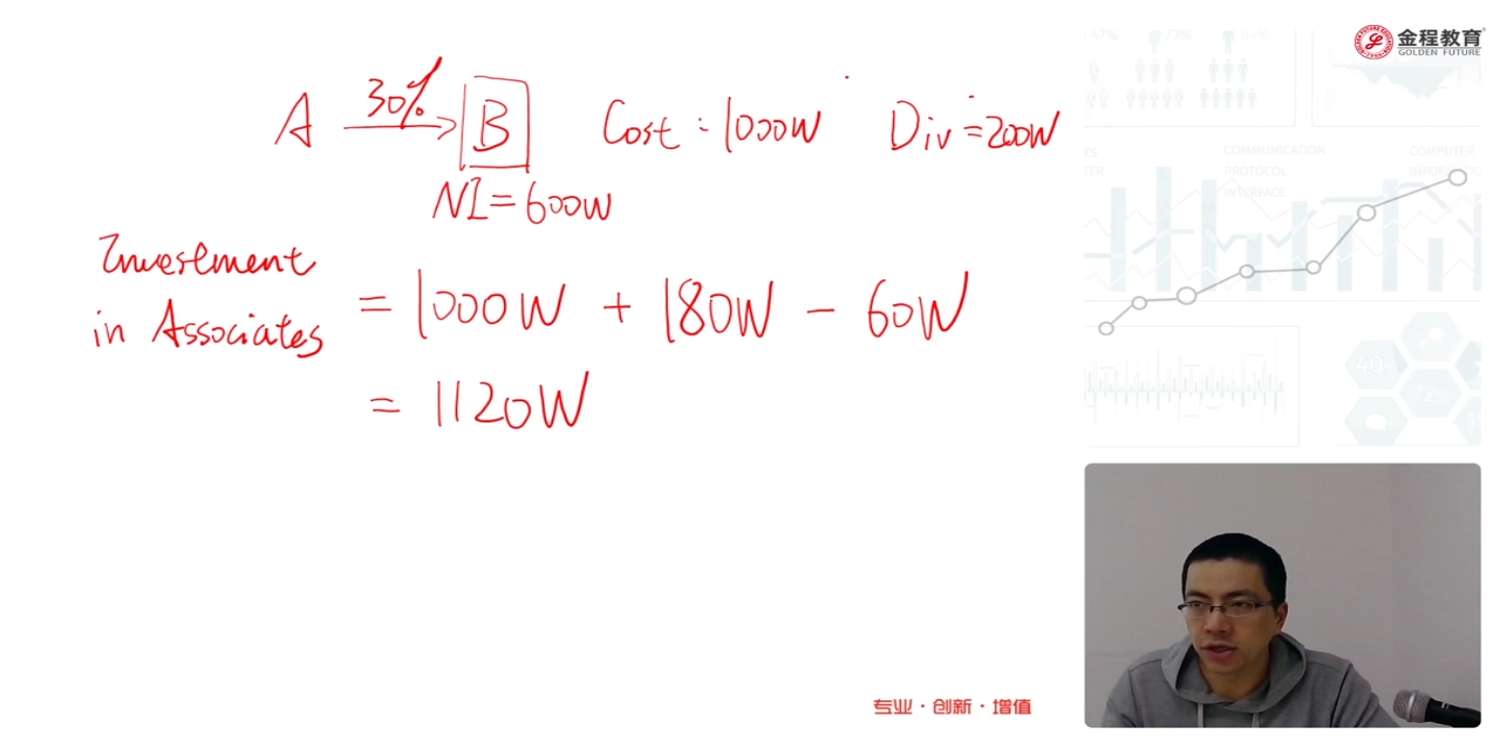 金程教育
GOLDEN FUTURE
A 30% B Cost : 1000W Div = 200W
NI = 600W
Investment
in Associates
= 1000W + 180W - 60W
= 1120W
COMMUNICATION
PROTOCOL
INTERFACE
COMPUTER
专业·创新·增值